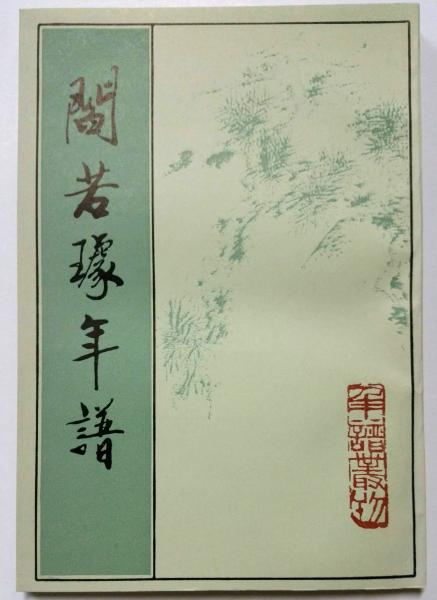 閻若璩年譜
年譜叢刊